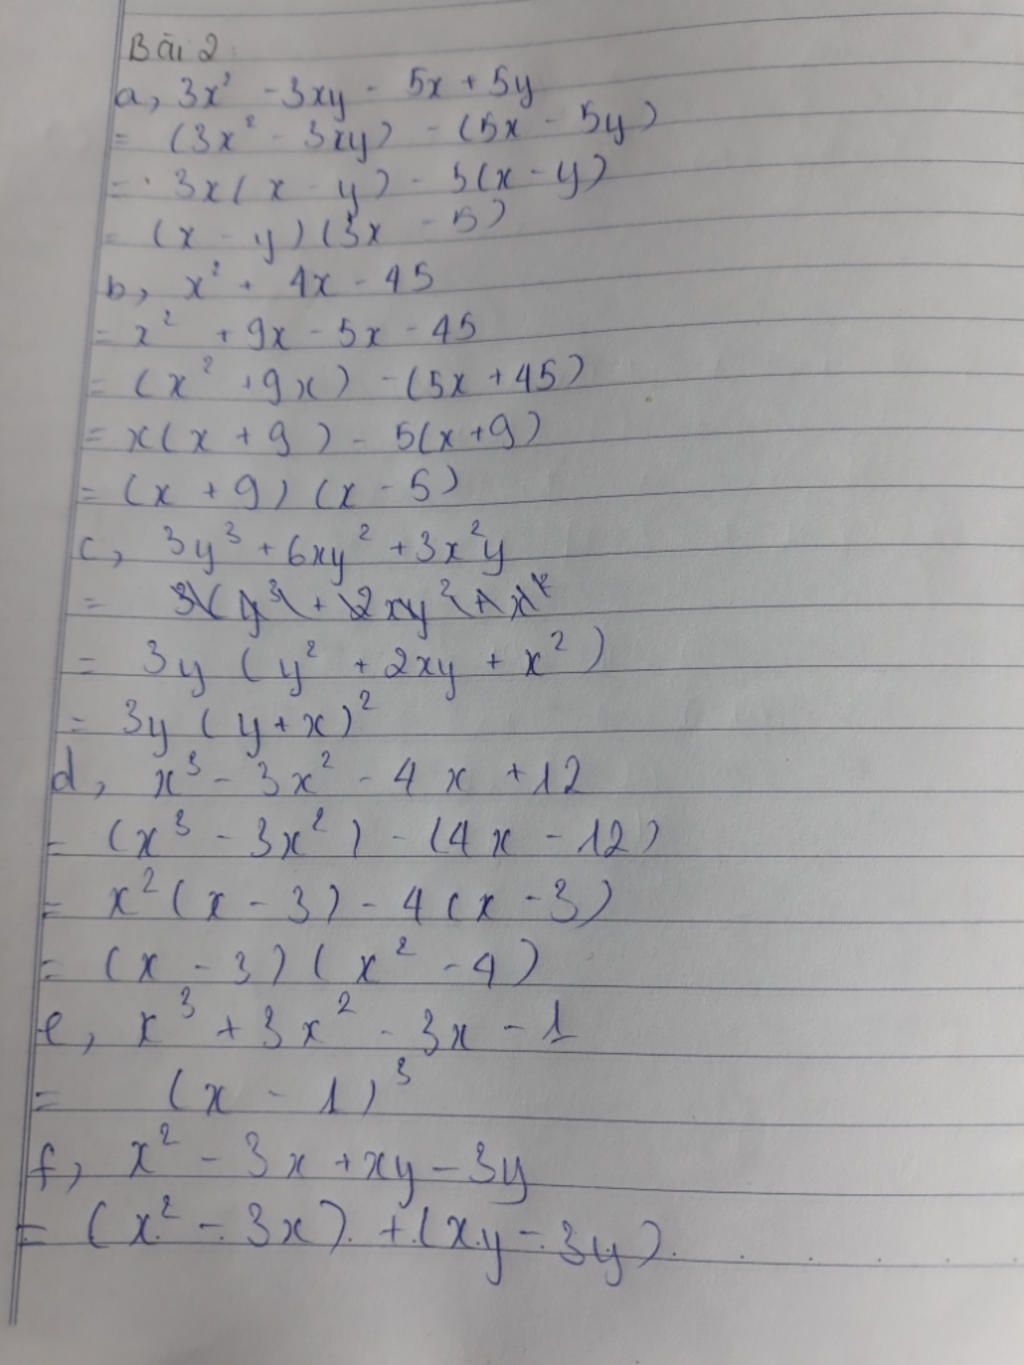 Bài 2
a, 3x² - 3xy - 5x + 5y
= (3x² - 3xy) - (5x - 5y)
= 3x(x - y) - 5(x - y)
= (x - y)(3x - 5)
b, x² + 4x - 45
= x² + 9x - 5x - 45
= (x² + 9x) - (5x + 45)
= x(x + 9) - 5(x + 9)
= (x + 9)(x - 5)
c, 3y³ + 6xy² + 3x²y
=
= 3y (y² + 2xy + x²)
= 3y (y + x)²
d, x³ - 3x² - 4x + 12
= (x³ - 3x²) - (4x - 12)
= x²(x - 3) - 4(x - 3)
= (x - 3)(x² - 4)
e, x³ + 3x² - 3x - 1
= (x - 1)³
f, x² - 3x + xy - 3y
= (x² - 3x) + (xy - 3y)